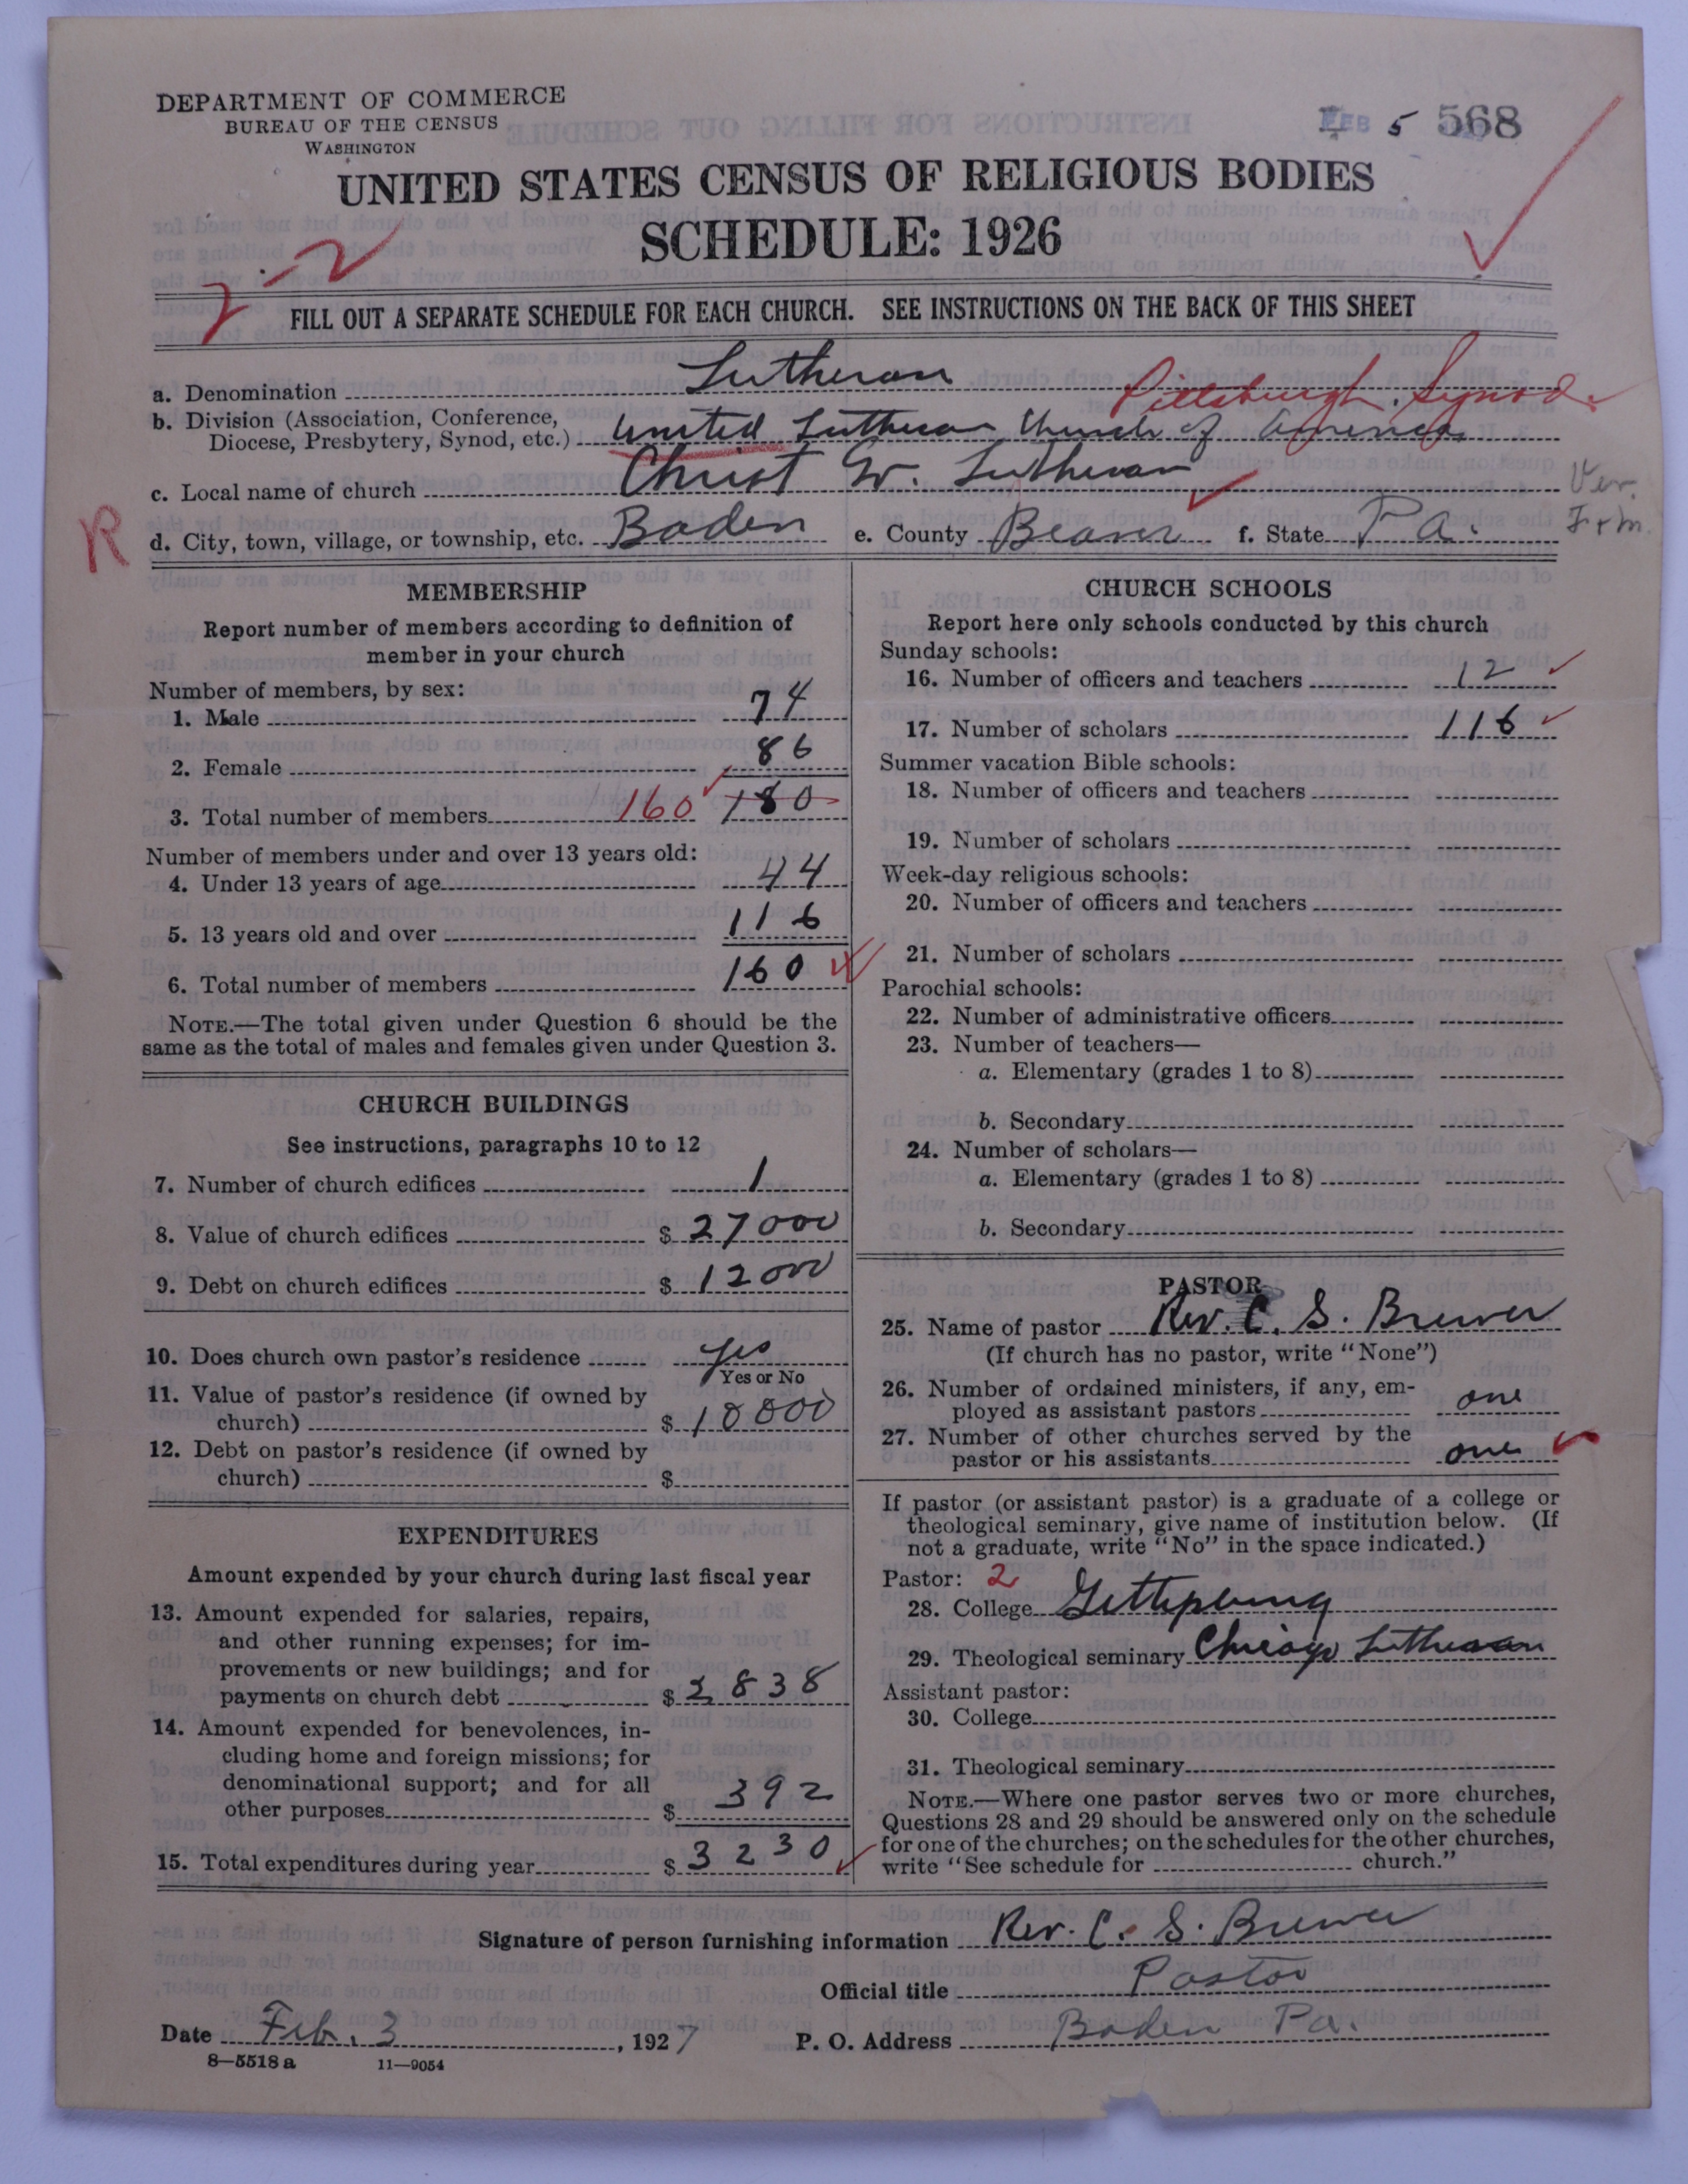 DEPARTMENT OF COMMERCE
BUREAU OF THE CENSUS
WASHINGTON
FEB 5 568
UNITED STATES CENSUS OF RELIGIOUS BODIES
SCHEDULE: 1926
2-2
FILL OUT A SEPARATE SCHEDULE FOR EACH CHURCH. SEE INSTRUCTIONS ON THE BACK OF THIS SHEET
a. Denomination Lutheran
Pittsburgh Synod.
b. Division (Association, Conference,
Diocese, Presbytery, Synod, etc.) United Lutheran Church of America
c. Local name of church Christ Ev. Lutheran
Ver.
R
d. City, town, village, or township, etc. Baden e. County Beaver f. State Pa.
MEMBERSHIP
Report number of members according to definition of
member in your church
Number of members, by sex:
1. Male 74
2. Female 86
3. Total number of members 160 180
Number of members under and over 13 years old:
4. Under 13 years of age 44
5. 13 years old and over 116
6. Total number of members 160
NOTE.—The total given under Question 6 should be the
same as the total of males and females given under Question 3.
CHURCH BUILDINGS
See instructions, paragraphs 10 to 12
7. Number of church edifices 1
8. Value of church edifices $ 27000
9. Debt on church edifices $ 12000
10. Does church own pastor's residence yes
Yes or No
11. Value of pastor's residence (if owned by
church) $ 10000
12. Debt on pastor's residence (if owned by
church) $
EXPENDITURES
Amount expended by your church during last fiscal year
13. Amount expended for salaries, repairs,
and other running expenses; for im-
provements or new buildings; and for
payments on church debt $ 2838
14. Amount expended for benevolences, in-
cluding home and foreign missions; for
denominational support; and for all
other purposes $ 392
15. Total expenditures during year $ 3230
CHURCH SCHOOLS
Report here only schools conducted by this church
Sunday schools:
16. Number of officers and teachers 12
17. Number of scholars 116
Summer vacation Bible schools:
18. Number of officers and teachers
19. Number of scholars
Week-day religious schools:
20. Number of officers and teachers
21. Number of scholars
Parochial schools:
22. Number of administrative officers
23. Number of teachers—
a. Elementary (grades 1 to 8)
b. Secondary
24. Number of scholars—
a. Elementary (grades 1 to 8)
b. Secondary
PASTOR
25. Name of pastor Rev. C. S. Brewer
(If church has no pastor, write "None")
26. Number of ordained ministers, if any, em-
ployed as assistant pastors one
27. Number of other churches served by the
pastor or his assistants one
If pastor (or assistant pastor) is a graduate of a college or
theological seminary, give name of institution below. (If
not a graduate, write "No" in the space indicated.)
Pastor: 2
28. College Gettysburg
29. Theological seminary Chicago Lutheran
Assistant pastor:
30. College
31. Theological seminary
NOTE.—Where one pastor serves two or more churches,
Questions 28 and 29 should be answered only on the schedule
for one of the churches; on the schedules for the other churches,
write "See schedule for church."
Signature of person furnishing information Rev. C. S. Brewer
Official title Pastor
Date Feb. 3, 1927 P. O. Address Baden Pa.
8—5518 a 11—9054